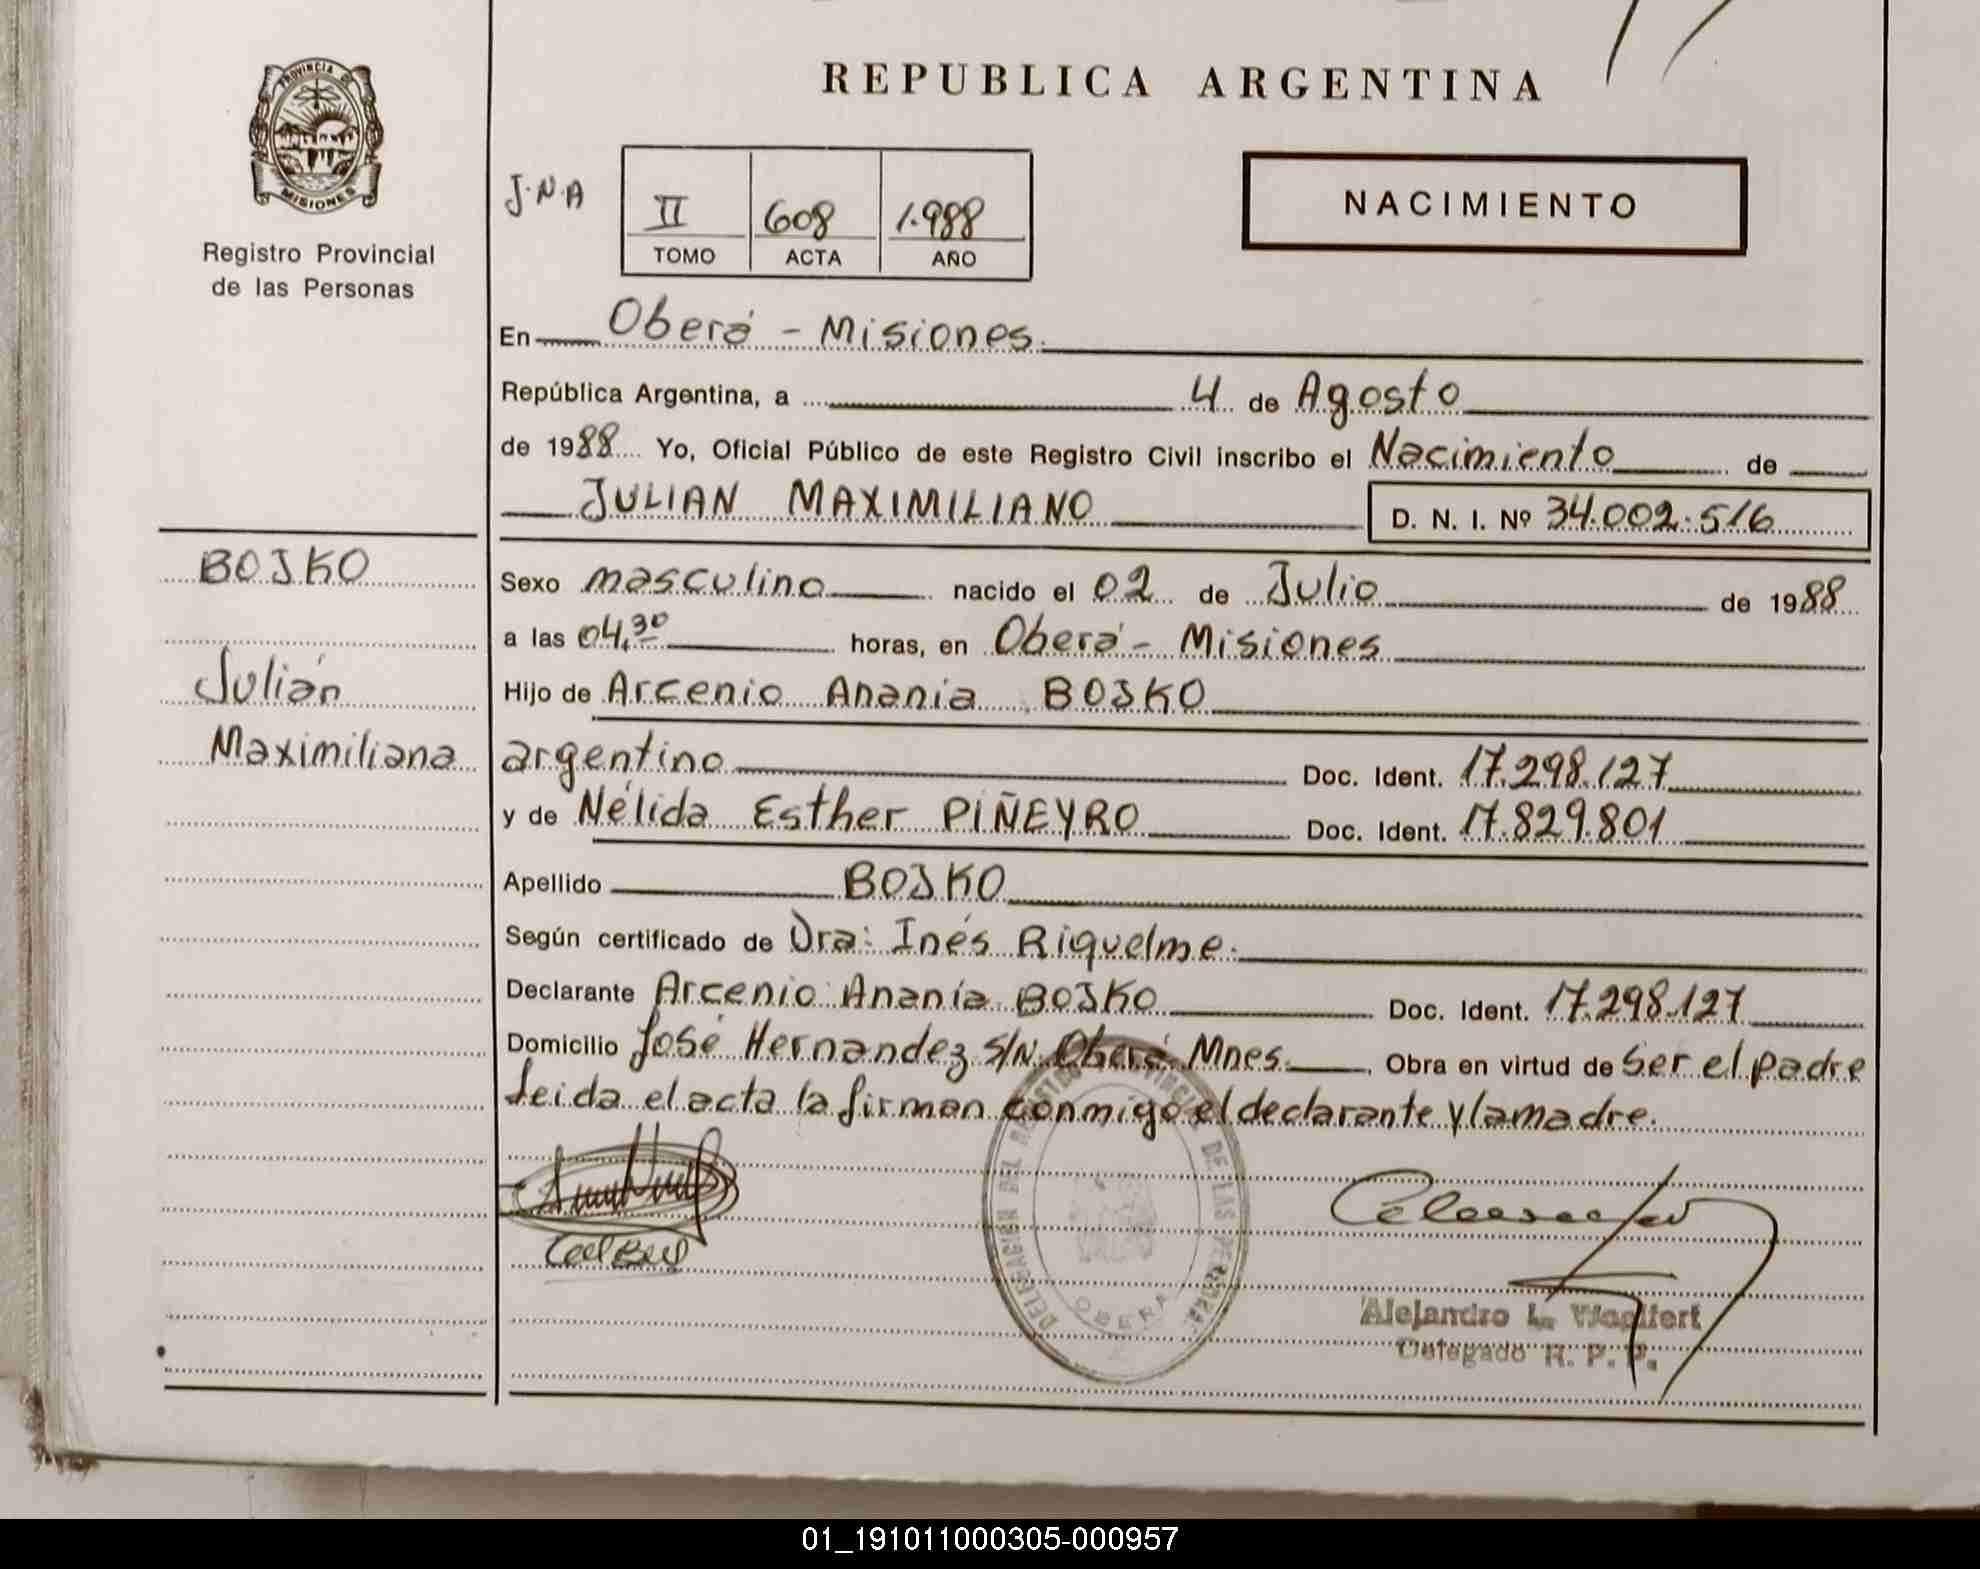 PROVINCIA D
MISIONES
Registro Provincial
de las Personas
REPUBLICA ARGENTINA
J.N.A
II 608 1.988
TOMO ACTA AÑO
NACIMIENTO
En Oberá - Misiones.
República Argentina, a 4 de Agosto
de 1988 Yo, Oficial Público de este Registro Civil inscribo el Nacimiento de
JULIAN MAXIMILIANO
D. N. I. Nº 34.002.516
BOJKO
Julián
Maximiliana
Sexo masculino nacido el 02 de Julio de 1988
a las 04,30 horas, en Oberá - Misiones
Hijo de Arcenio Anania BOJKO
argentino Doc. Ident. 17.298.127
y de Nélida Esther PIÑEYRO Doc. Ident. 17.829.801
Apellido BOJKO
Según certificado de Dra: Inés Riquelme.
Declarante Arcenio Ananía BOJKO Doc. Ident. 17.298.127
Domicilio José Hernandez S/N. Oberá Mnes. Obra en virtud de Ser el padre
leida el acta la firman conmigo el declarante y la madre.
DELEGACION DEL REGISTRO PROVINCIAL DE LAS PERSONAS
OBERA
Alejandro L.
Delegado R. P. P.
01_191011000305-000957